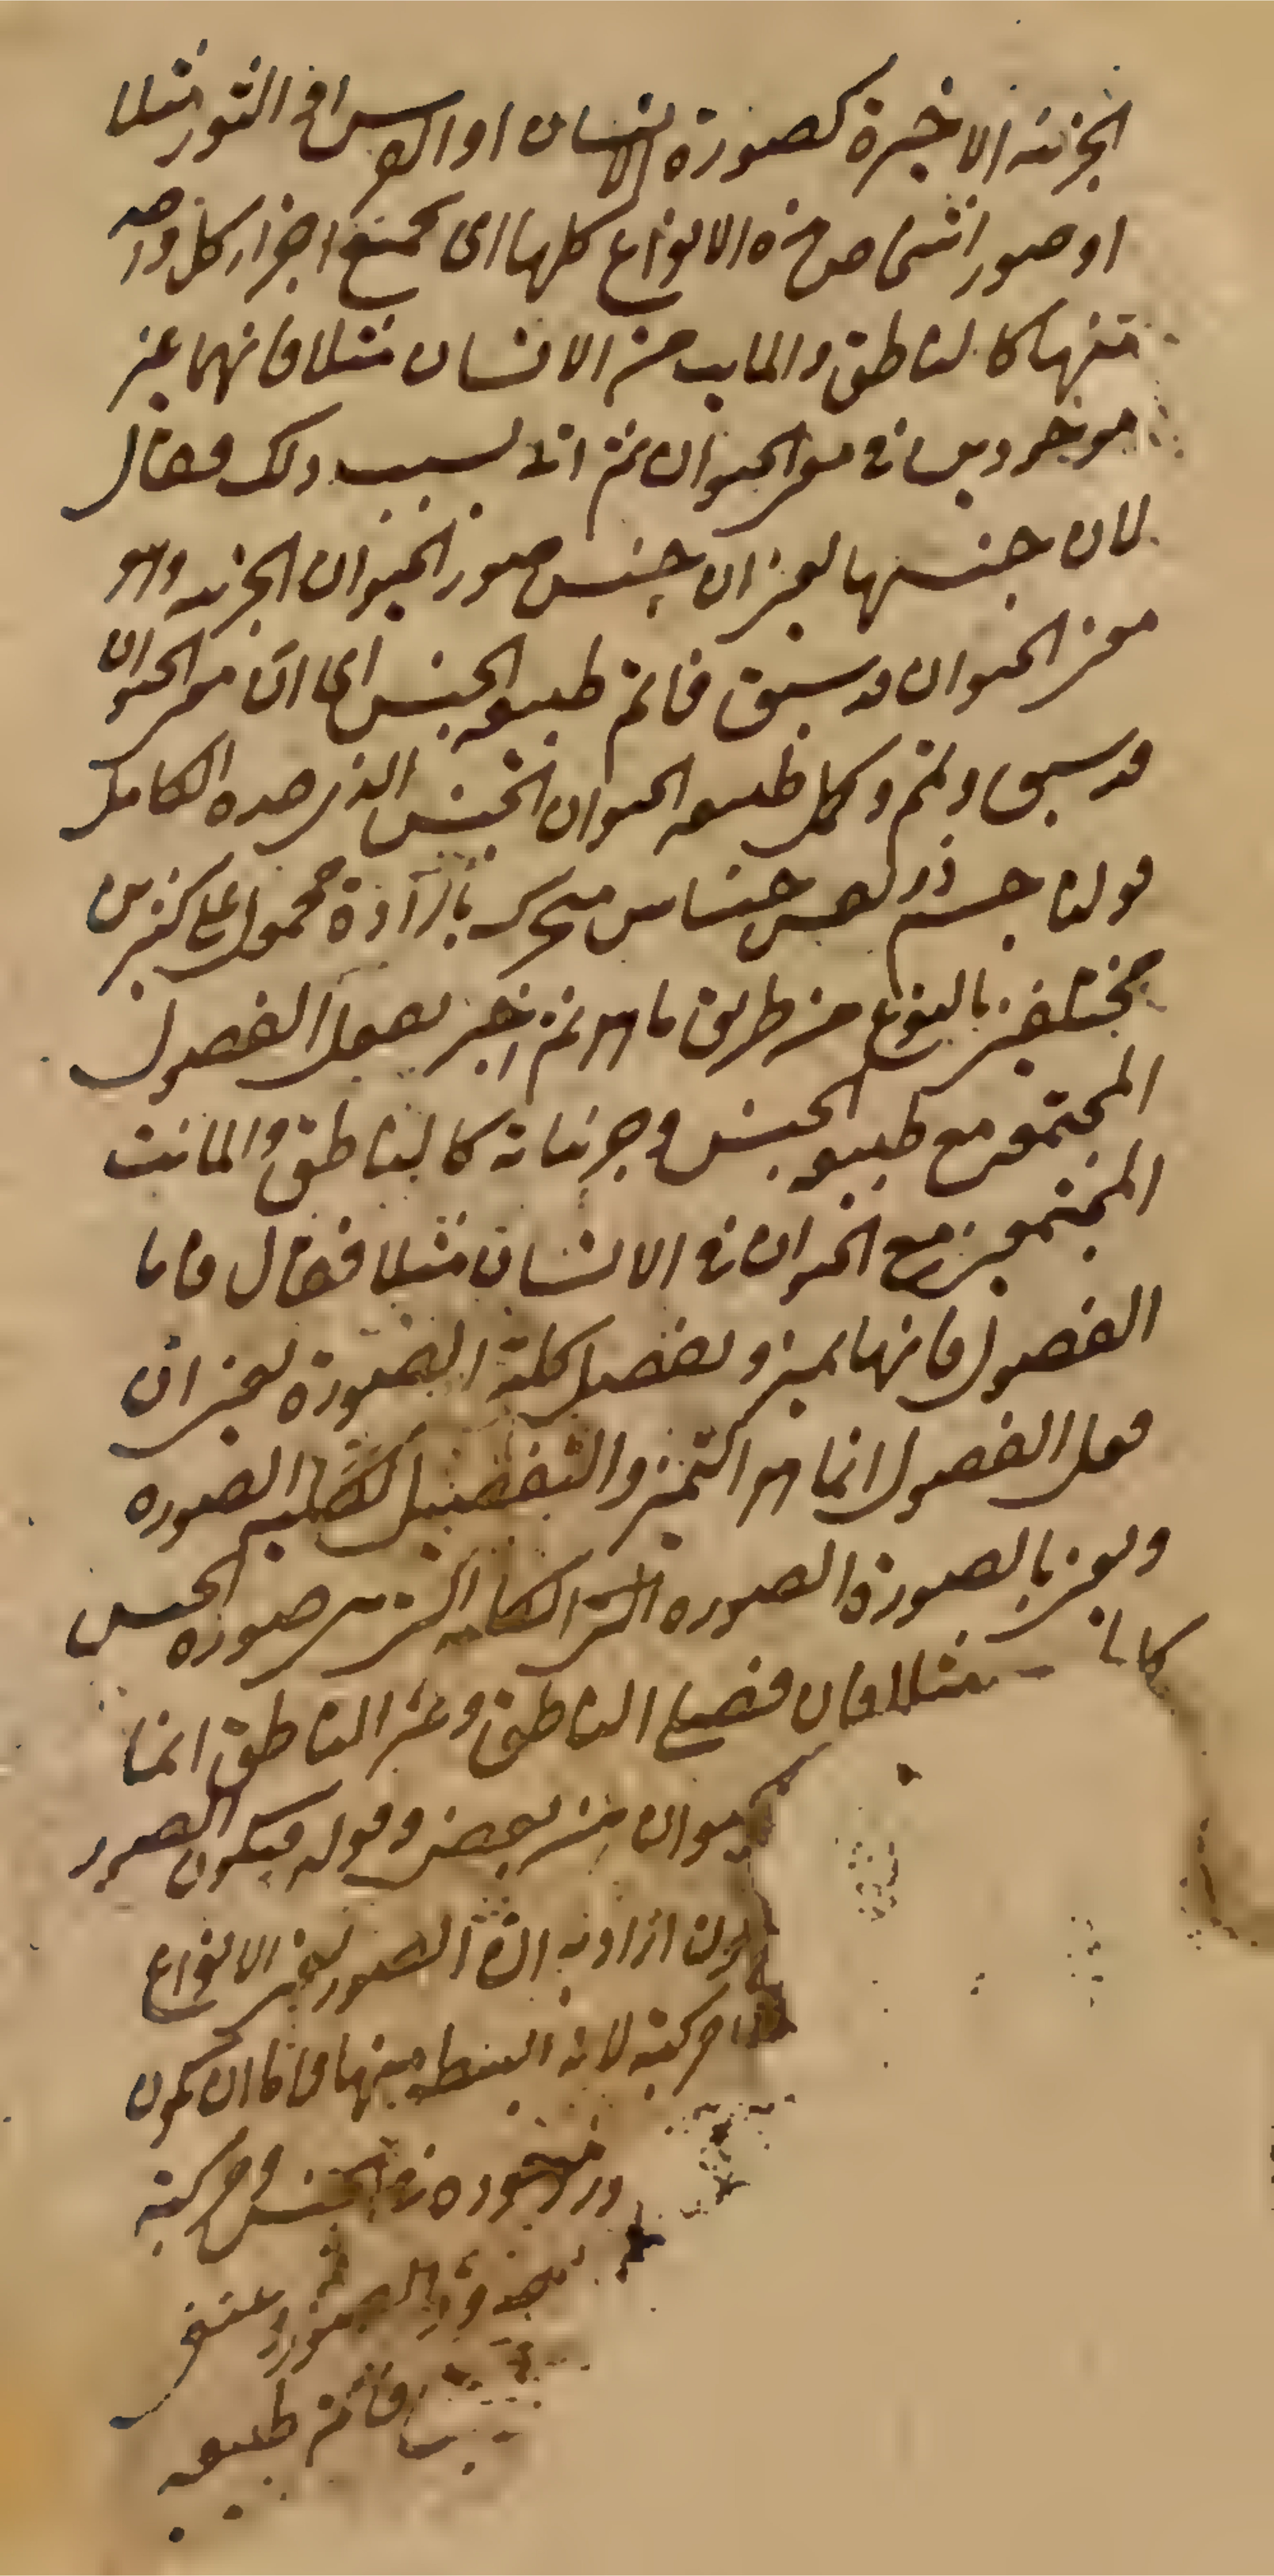 الجزئية الاخيرة كصورة الانسان او الفرس او الثور مثلا
او صور اشخاص هذه الانواع كلها اى جميع اجزاء كل واحد
منها كالناطق والمايت من الانسان مثلا فانهما غير
موجودين فى معنى الحيوان ثم اتى بسبب ذلك فقال
لان جنسها يعنى ان جنس صور الحيوان الجزئيه وهو
معنى الحيوان قد سبق فاتم طبيعه الجنس اى ان معنى الحيوان
قد سبق وتم وكمل طبيعه الحيوان الجنس الذى حده الكامل
قولنا جسم ذو نفس حساس متحرك بارادة محمول على كثيرين
مختلفين بالنوع من طريق ما هو ثم اخبر بفعل الفصول
المجتمعه مع طبيعه الجنس وجزئياته كالناطق والمائت
المجتمعين مع الحيوان فى الانسان مثلا فقال فاما
الفصول فانها تميز وتفصل كلية الصورة يعنى ان
فعل الفصول انما هو التميز والتفصيل لكلية الصوره
ويعنى بالصورة الصوره الكامله التى هى صورة الجنس
مثلا فان فصلى الناطق وغير الناطق انما
الحيوان من بعض وقوله فيكون الصور
اراد به ان الصور يعنى الانواع
مركبة لانه ابسط منها فاما ان تكون
موجوده فى الجنس ومركبة
الصور
فاتم طبيعه